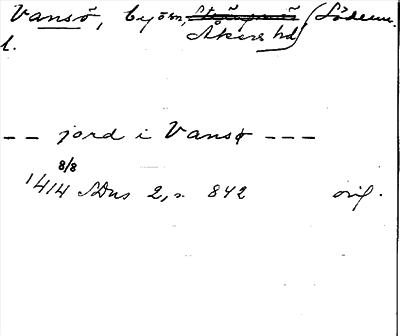 Vansö, byomr, Åkers hd (Söderm.
l.
-- jord i Vansø ---
1414 8/8 SDns 2, s. 842 orig.